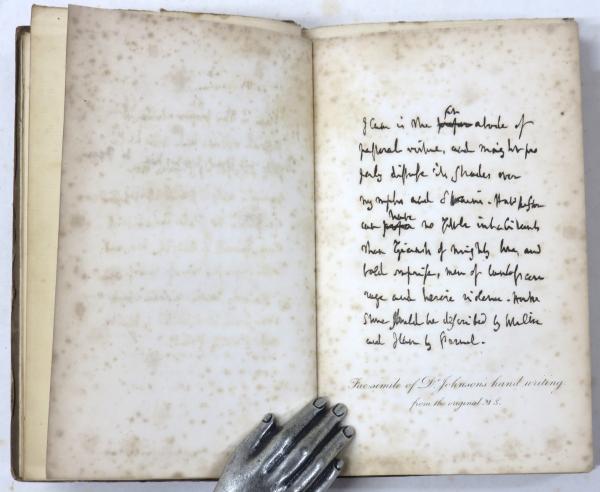 fit
Ilam is the proper abode of
pastoral virtue, and might pro
perly diffuse its Shades over
nymphs and Swains. Hawkestone
have
can no fitter inhabitants
than Giants of mighty bone, and
bold emprise, men of lawless cou
rage and heroic violence. Hawke
Stone should be described by Milton
and Ilam by Parnel.
Facsimile of Dr. Johnsons hand writing
from the original M S.